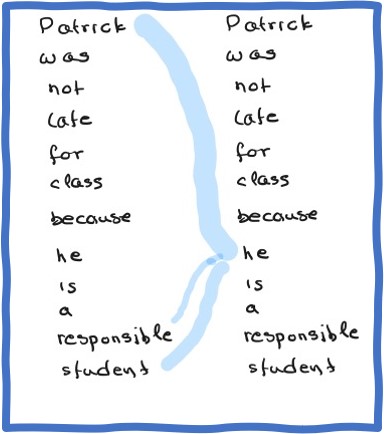 Patrick
was
not
late
for
class
because
he
is
a
responsible
student
Patrick
was
not
late
for
class
because
he
is
a
responsible
student